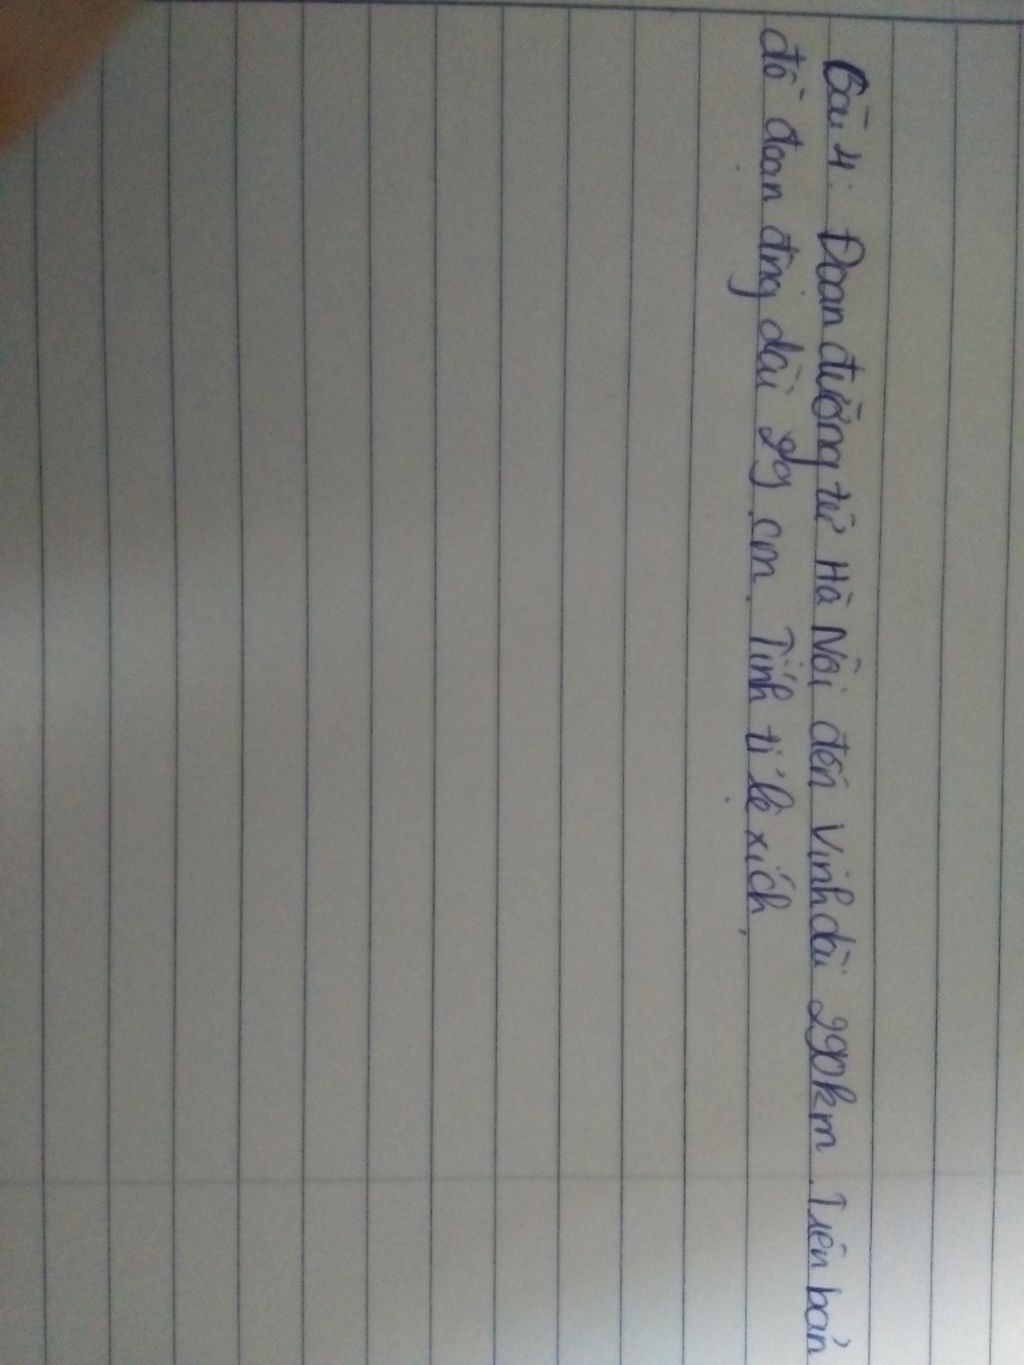 Bài 4: Đoạn đường từ Hà Nội đến Vinh dài 290km. Trên bản
đồ đoạn đng dài 29 cm. Tính tỉ lệ xích.